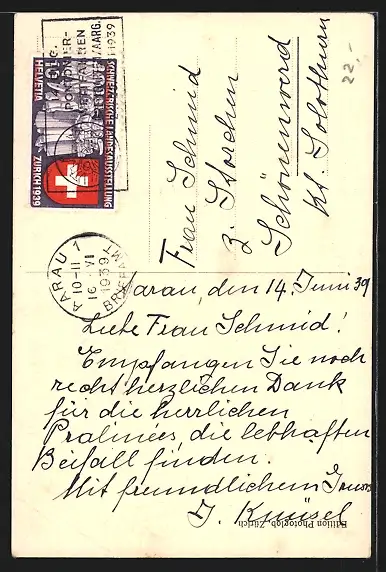 Aarau, den 14. Juni 39
Liebe Frau Schmid!
Empfangen Sie noch
recht herzlichen Dank
für die herrlichen
Pralinées, die lebhaften
Beifall finden.
Mit freundlichem Gruss
J. Knüsel
Frau Schmid
z. Storchen
Schönenwerd
Kt. Solothurn
22,-
HELVETIA
20
SCHWEIZERISCHE LANDESAUSSTELLUNG
ZÜRICH 1939
PONTONIER-
WETTFAHREN
AARG.
1939
AARAU 1
10-11
16. VI
1939
BRIEFAMT
Edition Photoglob, Zürich